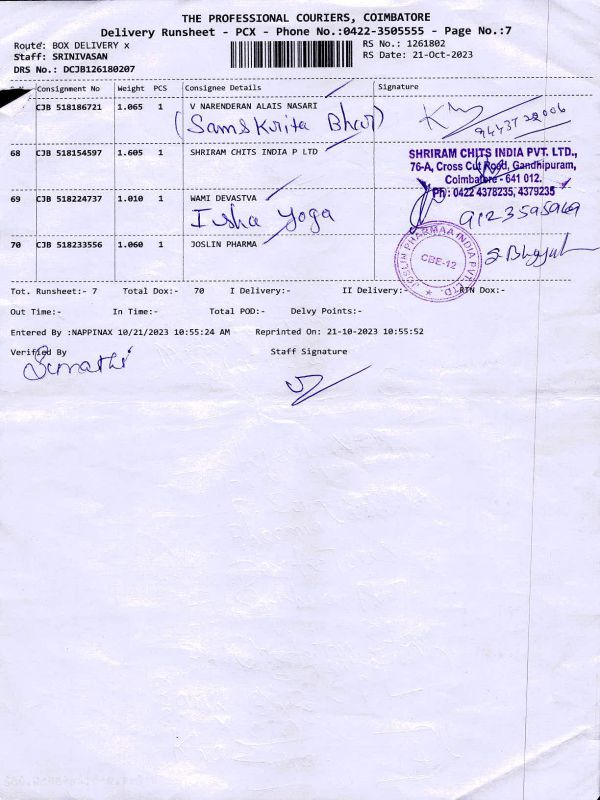 THE PROFESSIONAL COURIERS, COIMBATORE
Delivery Runsheet - PCX - Phone No.:0422-3505555 - Page No.:7
Route: BOX DELIVERY x RS No.: 1261802
Staff: SRINIVASAN RS Date: 21-Oct-2023
DRS No.: DCJB126180207
Consignment No Weight PCS Consignee Details Signature
CJB 518186721 1.065 1 V NARENDERAN ALAIS NASARI
(Samskurita Bhar)
94437 22006
68 CJB 518154597 1.605 1 SHRIRAM CHITS INDIA P LTD
SHRIRAM CHITS INDIA PVT. LTD.,
76-A, Cross Cut Road, Gandhipuram,
Coimbatore - 641 012.
Ph: 0422 4378235, 4379235
69 CJB 518224737 1.010 1 WAMI DEVASTVA
Isha Yoga
9123595969
70 CJB 518233556 1.060 1 JOSLIN PHARMA
JOSLIN PHARMAA INDIA PVT. LTD.
CBE-12
Tot. Runsheet:- 7 Total Dox:- 70 I Delivery:- II Delivery:- RTN Dox:-
Out Time:- In Time:- Total POD:- Delvy Points:-
Entered By :NAPPINAX 10/21/2023 10:55:24 AM Reprinted On: 21-10-2023 10:55:52
Verified By Staff Signature
Sumathi